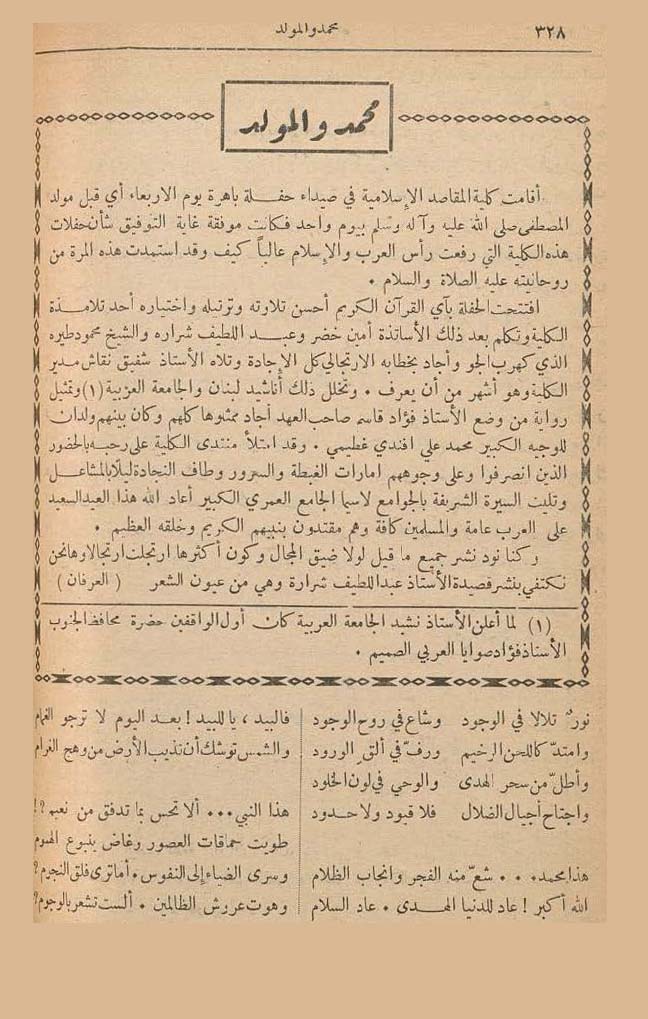 ٣٢٨
محمد والمولد
محمد والمولد
أقامت كلية المقاصد الإسلامية في صيداء حفلة باهرة يوم الاربعاء أي قبل مولد
المصطفى صلى الله عليه وآله وسلم بيوم واحد فكانت موفقة غاية التوفيق شأن حفلات
هذه الكلية التي رفعت رأس العرب والإسلام عالياً كيف وقد استمدت هذه المرة من
روحانيته عليه الصلاة والسلام .
افتتحت الحفلة بآي القرآن الكريم أحسن تلاوته وترتيله واختياره أحد تلامذة
الكلية وتكلم بعد ذلك الأساتذة أمين خضر وعبد اللطيف شراره والشيخ محمود طيره
الذي كهرب الجو وأجاد بخطابه الارتجالي كل الإجادة وتلاه الأستاذ شفيق نقاش مدير
الكلية وهو أشهر من أن يعرف . وتخلل ذلك أناشيد لبنان والجامعة العربية (١) وتمثيل
رواية من وضع الأستاذ فؤاد قاسم صاحب العهد أجاد ممثلوها كلهم وكان بينهم ولدان
للوجيه الكبير محمد علي افندي غطيمي . وقد امتلأ منتدى الكلية على رحبه بالحضور
الذين انصرفوا وعلى وجوههم امارات الغبطة والسرور وطاف النجادة ليلاً بالمشاعل
وتليت السيرة الشريفة بالجوامع لاسيما الجامع العمري الكبير أعاد الله هذا العيد السعيد
على العرب عامة والمسلمين كافة وهم مقتدون بنبيهم الكريم وخلقه العظيم .
وكنا نود نشر جميع ما قيل لولا ضيق المجال وكون أكثرها ارتجلت ارتجالا وها نحن
نكتفي بنشر قصيدة الأستاذ عبد اللطيف شرارة وهي من عيون الشعر ( العرفان )
(١) لما أعلن الأستاذ نشيد الجامعة العربية كان أول الواقفين حضرة محافظ الجنوب
الأستاذ فؤاد صوايا العربي الصميم .
نورٌ تلالا في الوجود وشاع في روح الوجود
وامتدّ كاللحن الرخيم ورفّ في ألق الورود
وأطلّ من سحر الهدى والوحي في لون الخلود
واجتاح أجيال الضلال فلا قيود ولا حدود
هذا محمد . . . شعّ منه الفجر وانجاب الظلام
الله أكبر ! عاد للدنيا الهدى . عاد السلام
فالبيد ، يا للبيد ! بعد اليوم لا ترجو الغمام
والشمس توشك أن تذيب الأرض من وهج الغرام
هذا النبي ... ألا تحس بما تدفق من نعيم ؟!
طويت حماقات العصور وغاض ينبوع الهموم
وسرى الضياء إلى النفوس . أما ترى فلق النجوم ؟
وهوت عروش الظالمين . ألست تشعر بالوجوم ؟